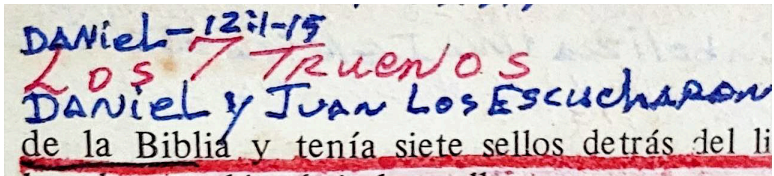 DANiEL - 12:1-15
LOS 7 TRUENOS
DANiEL y JUAN LOS ESCUCHARON
de la Biblia y tenía siete sellos detrás del li